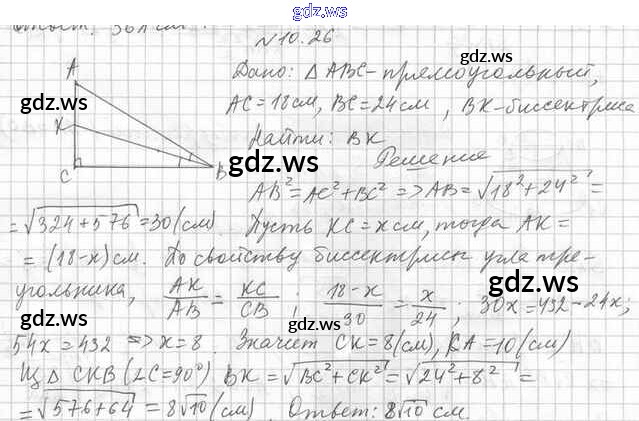 gdz.ws
Ответ: 36π см.
№10.26
gdz.ws
A
Дано: △ABC-прямоугольный,
gdz.ws
AC=18см, BC=24см, BK-биссектриса
K
Найти: BK
gdz.ws
Решение
C B
AB²=AC²+BC² => AB=√18²+24² =
=√324+576=30(см). Пусть KC=x см, тогда AK=
=(18-x)см. По свойству биссектрисы угла тре-
угольника, AK/AB = KC/CB ; 18-x/30 = x/24 ; 30x=432-24x;
gdz.ws
gdz.ws
54x=432 => x=8. Значит CK=8(см), KA=10(см)
Из △ CKB (∠C=90°) BK=√BC²+CK²=√24²+8² =
=√576+64 = 8√10 (см) Ответ: 8√10 см.
gdz.ws